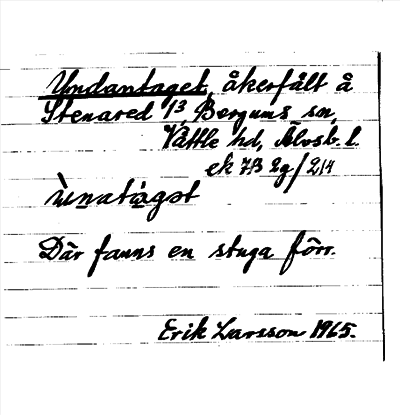 Undantaget, åkerfält å
Stenared 1³, Bergums sn,
Vättle hd, Älvsb. l.
ek 7B 2g/214
ùnatàgət
Där fanns en stuga förr.
Erik Larsson 1965.